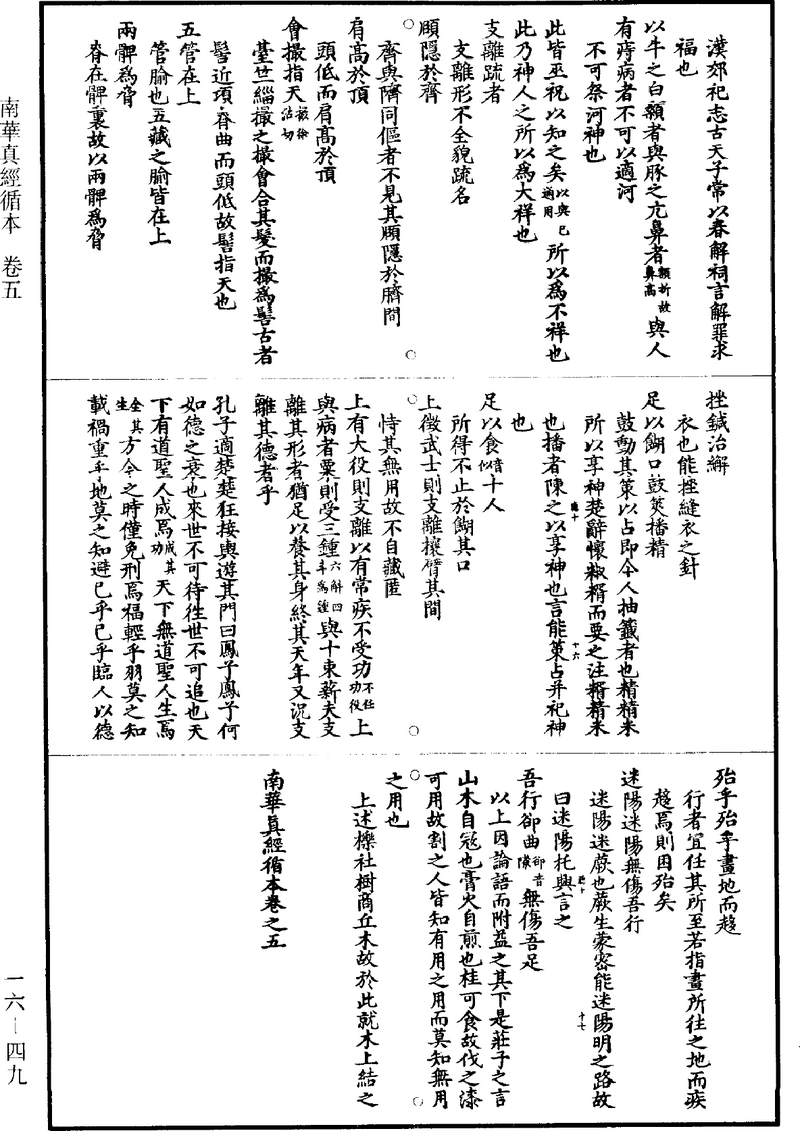 南華真經循本　卷五
漢郊祀志古天子常以春解祠言解罪求
福也
以牛之白顙者與豚之亢鼻者額折故鼻高與人
有痔病者不可以適河
不可祭河神也
此皆巫祝以知之矣以與已通用所以爲不祥也
此乃神人之所以爲大祥也
支離疏者
支離形不全貌疏名
頤隱於齊
齊與臍同傴者不見其頤隱於臍間
肩高於頂
頭低而肩高於頂
會撮指天撮徐活切
臺笠緇撮之撮會合其髮而撮爲髻古者
髻近項脊曲而頭低故髻指天也
五管在上
管腧也五藏之腧皆在上
兩髀爲脅
脊在髀裏故以兩髀爲脅
挫鍼治繲
衣也能挫縫衣之針
足以餬口鼓筴播精
鼓動其筴以占即今人抽籤者也精精米
所以享神楚辭懷椒糈而要之注糈精米
也播者陳之以享神也言能筴占并祀神
也
足以食音似十人
所得不止於餬其口
上徵武士則支離攘臂其間
恃其無用故不自藏匿
上有大役則支離以有常疾不受功不任功役上
與病者粟則受三鍾六斛四斗爲鍾與十束薪夫支
離其形者猶足以養其身終其天年又況支
離其德者乎
孔子適楚楚狂接輿遊其門曰鳳子鳳子何
如德之衰也來世不可待徃世不可追也天
下有道聖人成焉成其功天下無道聖人生焉
全其生方今之時僅免刑焉福輕乎羽莫之知
載禍重乎地莫之知避已乎已乎臨人以德
殆乎殆乎畫地而趍
行者宜任其所至若指畫所往之地而疾
趍焉則困殆矣
迷陽迷陽無傷吾行
迷陽迷蕨也蕨生蒙密能迷陽明之路故
曰迷陽托興言之
吾行郤曲郤音隙無傷吾足
以上因論語而附益之其下是莊子之言
山木自寇也膏火自煎也桂可食故伐之漆
可用故割之人皆知有用之用而莫知無用
之用也
上述櫟社樹商丘木故於此就木上結之
南華真經循本卷之五
一六—四九